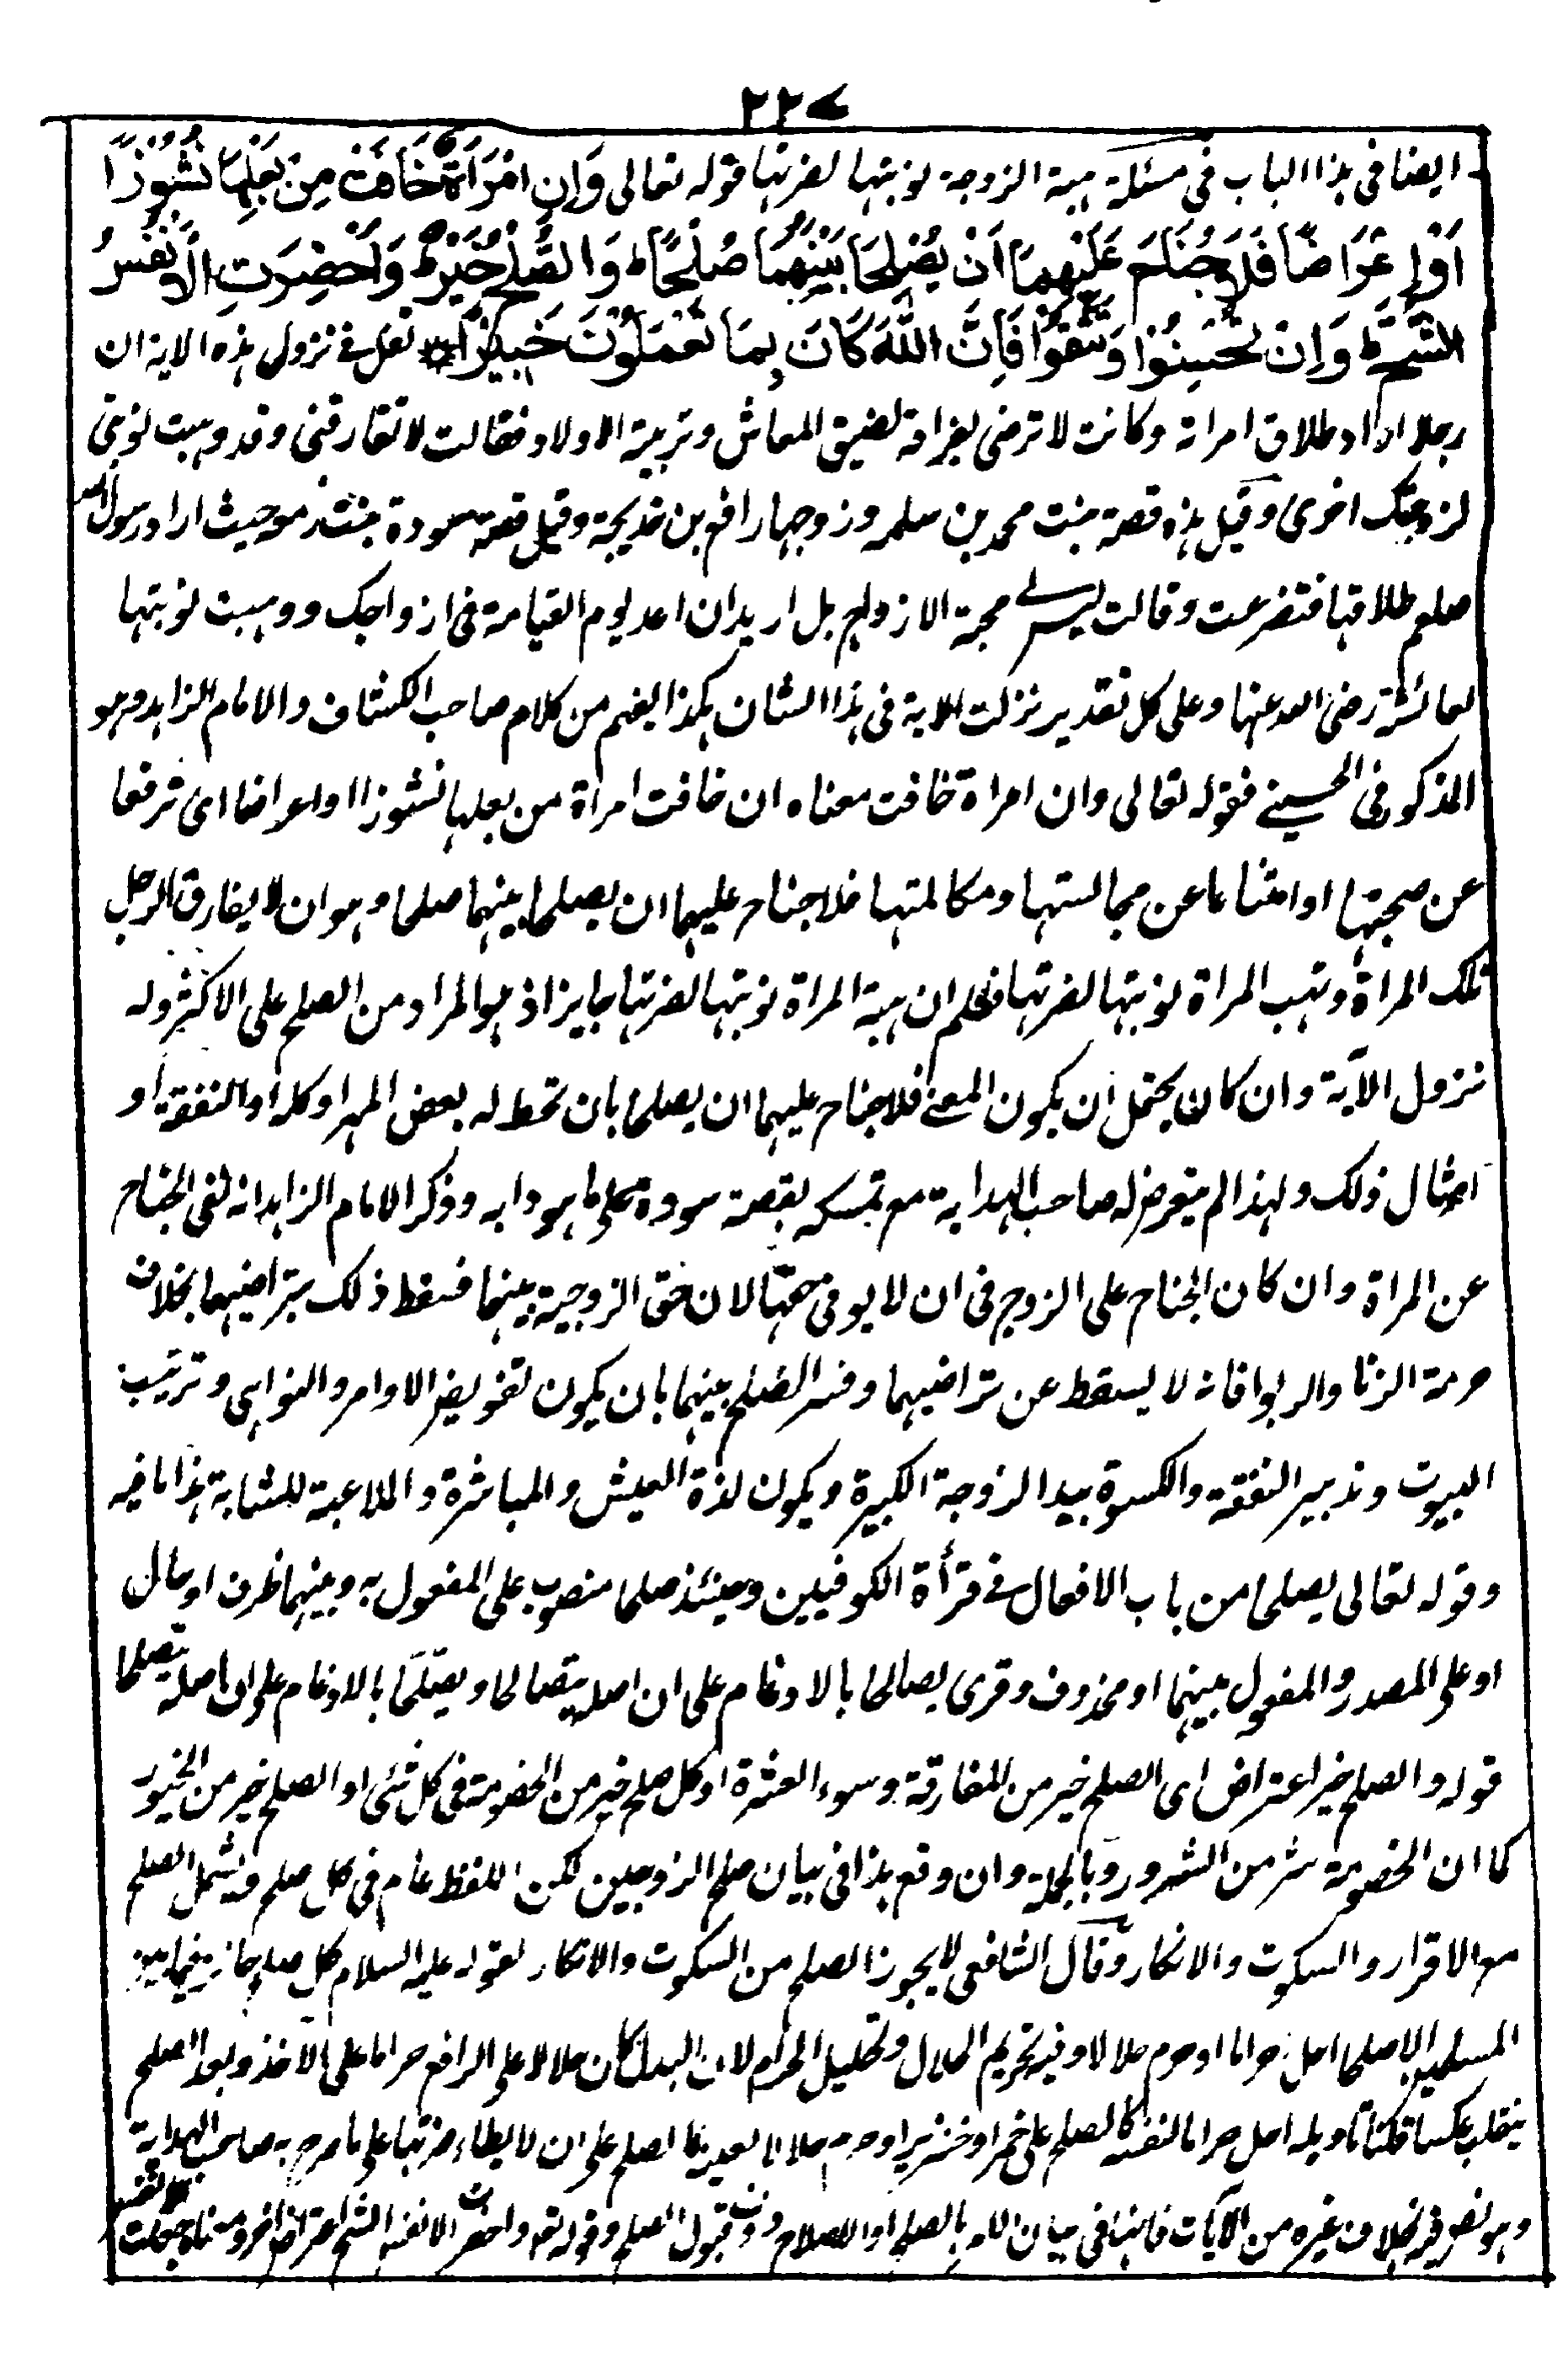 ٢٢٧
ايضا فى هذا الباب فى مسئلة هبة الزوجة نوبتها لضرتها قوله تعالى وَاِنِ امْرَاَةٌ خَافَتْ مِنْ بَعْلِهَا نُشُوْزًا
اَوْ اِعْرَاضًا فَلَا جُنَاحَ عَلَيْهِمَا اَنْ يُصْلِحَا بَيْنَهُمَا صُلْحًا ط وَالصُّلْحُ خَيْرٌ ط وَاُحْضِرَتِ الْاَنْفُسُ
الشُّحَّ ط وَاِنْ تُحْسِنُوْا وَتَتَّقُوْا فَاِنَّ اللّٰهَ كَانَ بِمَا تَعْمَلُوْنَ خَبِيْرًا نقل فى نزول هذه الاية ان
رجلا اراد طلاق امراته وكانت لا ترضى بفراقه لضيق المعاش وتربية الاولاد فقالت لا تفارقنى وقد وهبت نوبتى
لزوجتك اخرى وقيل هذه قصة بنت محمد بن سلمه وزوجها رافع بن خديجة وقيل قصة سودة بنت زمعة حيث اراد رسول الله
صلعم طلاقها فتضرعت وقالت ليس لى محبة الازواج بل اريد ان اعد يوم القيامة فى ازواجك ووهبت نوبتها
لعائشة رضى الله عنها وعلى كل تقدير نزلت الاية فى هذا الشان هكذا يفهم من كلام صاحب الكشاف والامام الزاهد وهو
المذكور فى الحسينى فقوله تعالى وان امراة خافت معناه ان خافت امراة من بعلها نشوزا او اعراضا اى ترفعا
عن صحبتها او امتناعا عن مجالستها ومكالمتها فلا جناح عليهما ان يصلحا بينهما صلحا وهو ان لا يفارق الرجل
تلك المراة وتهب المراة نوبتها لضرتها فعلم ان هبة المراة نوبتها لضرتها جايز اذ هو المراد من الصلح على الاكثر وله
نزول الآية وان كان يحتمل ان يكون المعنى فلا جناح عليهما ان يصلحا بان تحط له بعض المهر او كله او النفقة او
امثال ذلك ولهذا لم يتعرض له صاحب الهداية مع تمسكه بقصة سودة على ما هو دابه وذكر الامام الزاهد انه نفى الجناح
عن المراة وان كان الجناح على الزوج فى ان لا يوفى حقها لان حق الزوجية بينهما فسقط ذلك بتراضيهما بخلاف
حرمة الزنا والربوا فانه لا يسقط عن تراضيهما وفسر الصلح بينهما بان يكون تفويض الاوامر والنواهى وترتيب
البيوت وتدبير النفقة والكسوة بيد الزوجة الكبيرة ويكون لذة العيش والمباشرة والملاعبة للشابة هذا ما فيه
وقوله تعالى يصلحا من باب الافعال فى قرأة الكوفيين وحينئذ صلحا منصوب على المفعول به وبينهما ظرف او حال
او على المصدر والمفعول بينهما او محذوف وقرى يصالحا بالادغام على ان اصله يتصالحا ويصّلحا بالادغام على ان اصله يتصلحا
قوله والصلح خير اعتراض اى الصلح خير من المفارقة وسوء العشرة او كل صلح خير من الخصومة فى كل شئ او الصلح خير من الخيور
كما ان الخصومة شر من الشرور وبالجملة وان وقع هذا فى بيان صلح الزوجين لكن اللفظ عام فى كل صلح فيشمل الصلح
مع الاقرار والسكوت والانكار وقال الشافعى لا يجوز الصلح من السكوت والانكار لقوله عليه السلام كل صلح جائز فيما بين
المسلمين الا صلحا احل حراما او حرم حلالا وفيه تحريم الحلال وتحليل الحرام لان البدل كان حلالا على الرافع حراما على الاخذ وبعد الصلح
ينقلب عكسا قلنا تاويله احل حراما لنفسه كالصلح على خمر او خنزير او حرم حلالا لعينه كالصلح على ان لا يطاء ضرتها على ما صرح به صاحب الهداية
وهو نص فيه بخلاف غيره من الآيات فانها فى بيان الامر بالصلح او الاصلاح دون قبول الصلح وقوله تع واحضرت الانفس الشح اعتراض اخر ومعناه جعلت